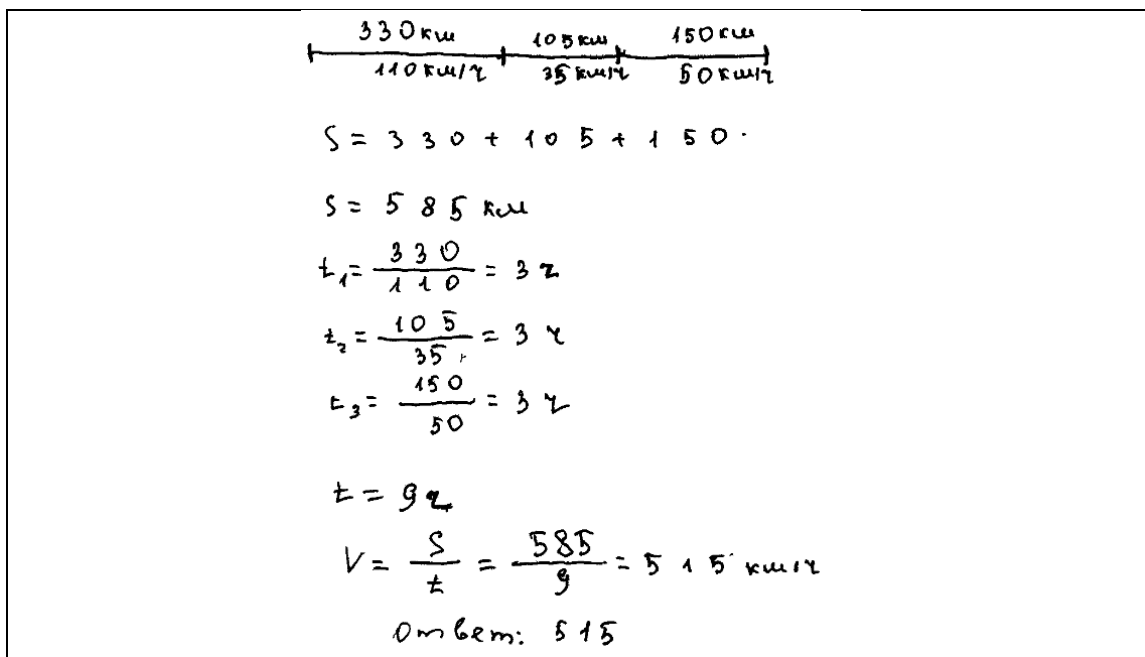 330 км 105 км 150 км
110 км/ч 35 км/ч 50 км/ч
S = 330 + 105 + 150.
S = 585 км
t₁ = 330/110 = 3 ч
t₂ = 105/35 = 3 ч
t₃ = 150/50 = 3 ч
t = 9 ч
V = S/t = 585/9 = 515 км/ч
Ответ: 515